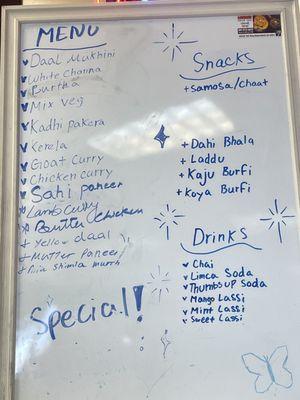 MENU
Daal Makhini
White Channa
Burtha
Mix veg
Kadhi pakora
Kerela
Goat Curry
Chicken curry
Sahi paneer
Lamb curry
Butter Chicken
+ Yellow daal
+ Mutter Paneer
shimla
Special!
Snacks
+ Samosa/chaat
+ Dahi Bhala
+ Laddu
+ Kaju Burfi
+ Koya Burfi
Drinks
Chai
Limca Soda
Thumbs up Soda
Mango Lassi
Mint Lassi
Sweet Lassi